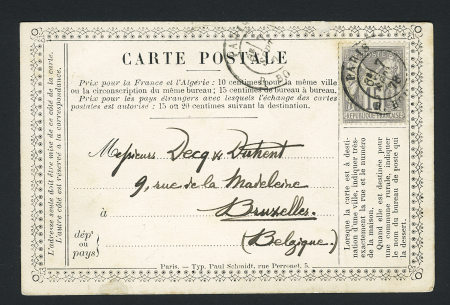 CARTE POSTALE
Prix pour la France et l'Algérie : 10 centimes pour la même ville
ou la circonscription du même bureau; 15 centimes de bureau à bureau.
Prix pour les pays étrangers avec lesquels l'échange des cartes
postales est autorisé : 15 ou 20 centimes suivant la destination.
PARIS
REPUBLIQUE FRANCAISE
Messieurs Decq & Duhent
9, rue de la Madeleine
à Bruxelles.
(Belgique)
dépt
ou
pays
L'adresse seule doit être mise de ce côté de la carte.
L'autre côté est réservé à la correspondance.
Lorsque la carte est à desti-
nation d'une ville, indiquer très-
exactement la rue et le numéro
de la maison.
Quand elle est destinée pour
une commune rurale, indiquer
le nom du bureau de poste qui
la dessert.
Paris. — Typ. Paul Schmidt, rue Perronet, 5.